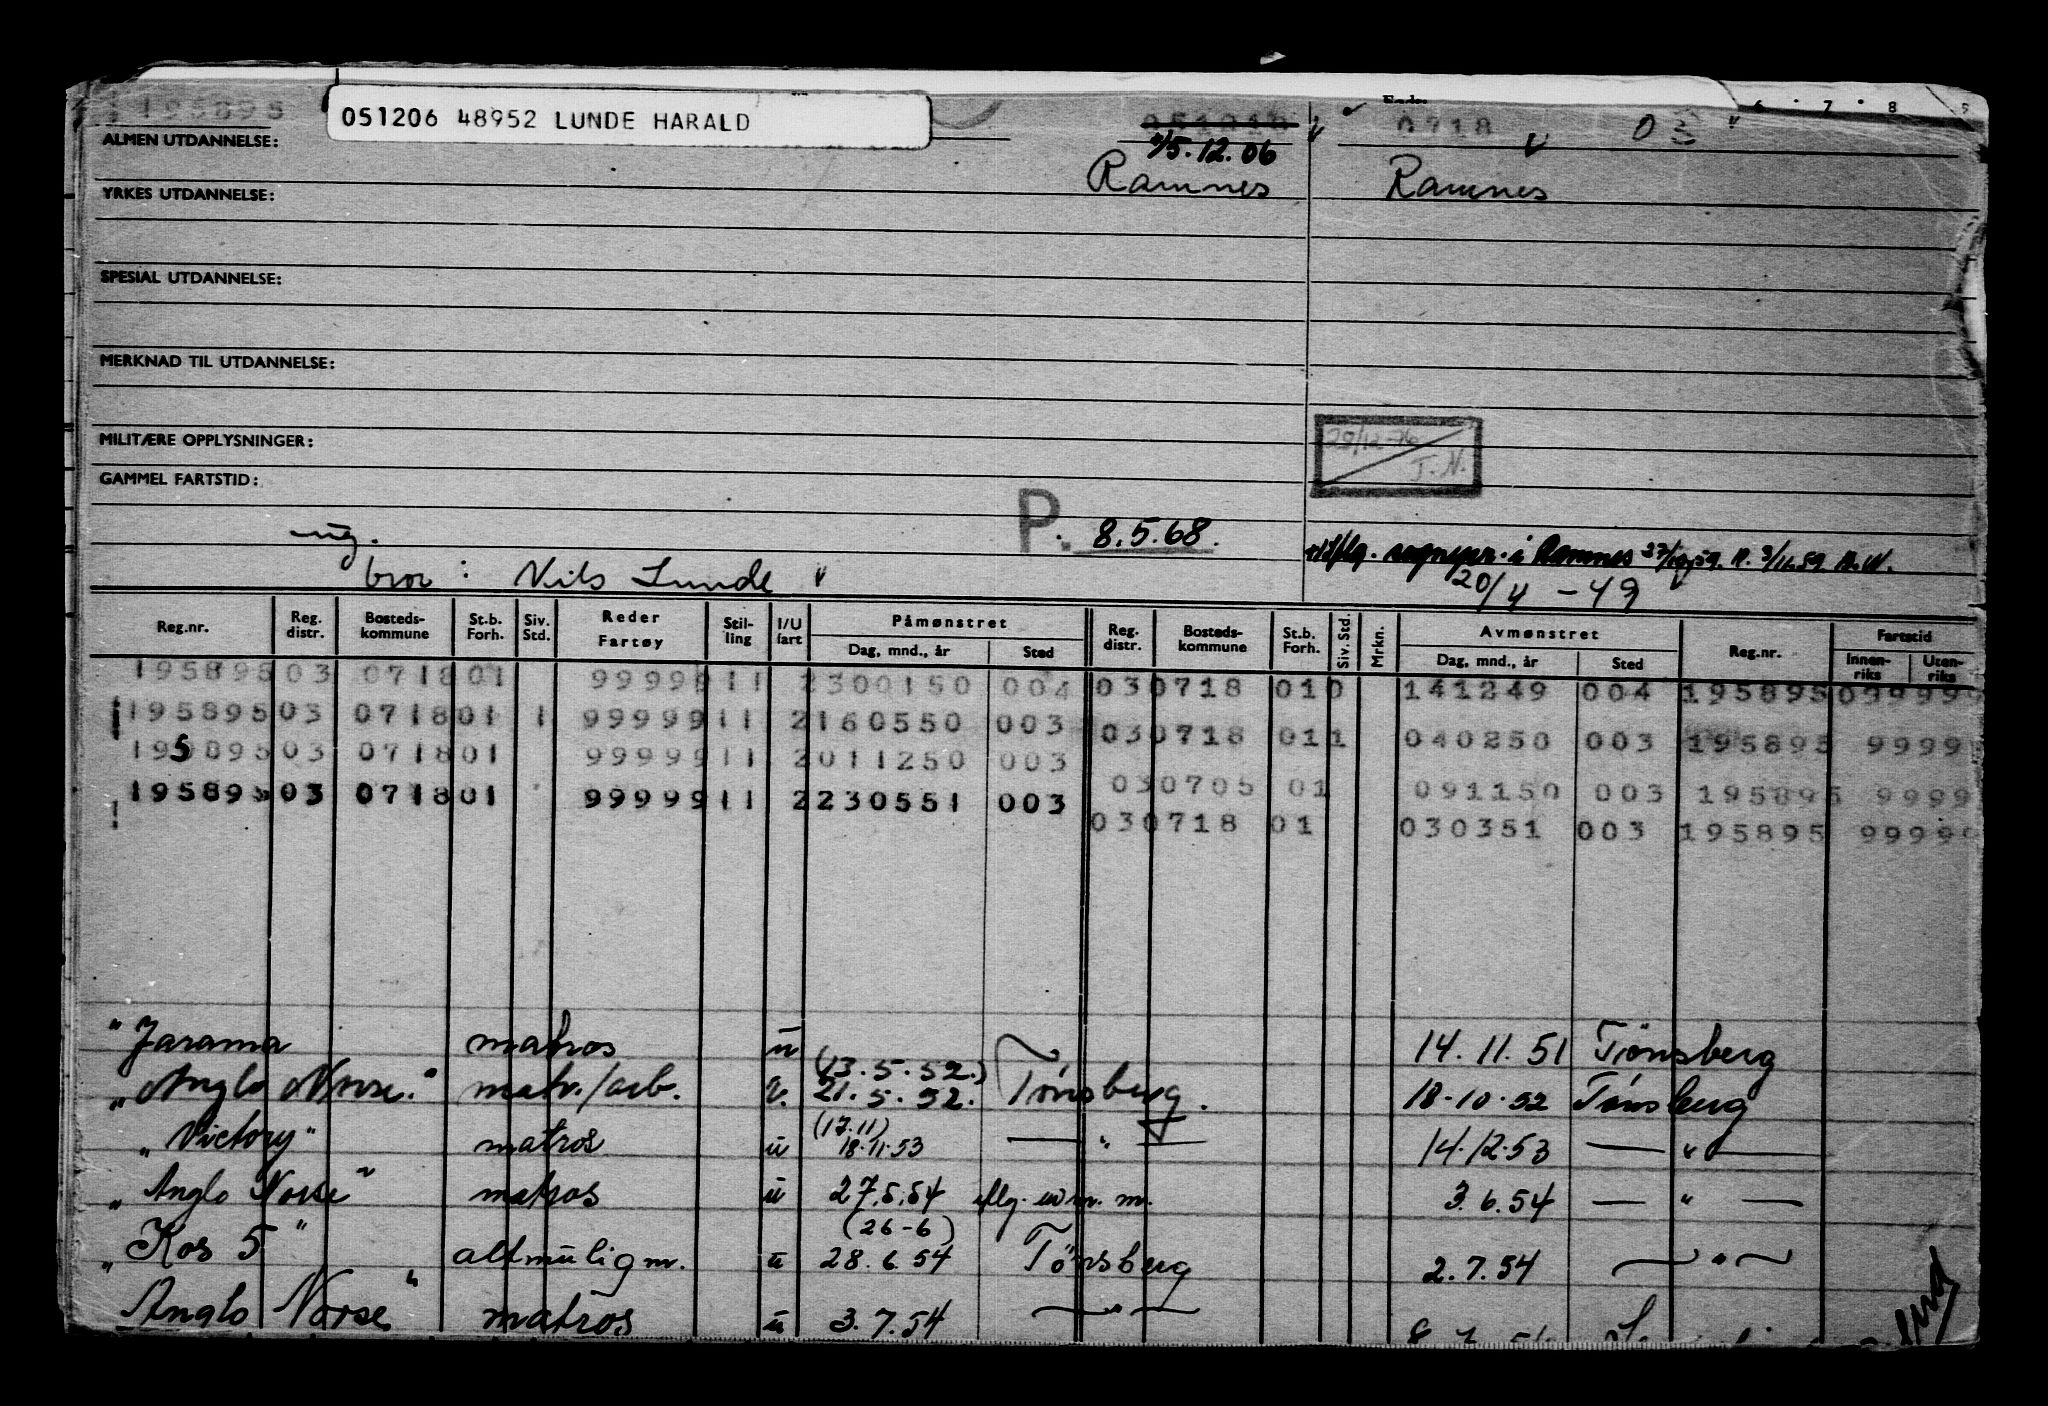 195895
051206 48952 LUNDE HARALD
6 7 8
0718
5.12.06
ALMEN UTDANNELSE:
Ramnes Ramnes
YRKES UTDANNELSE:
SPESIAL UTDANNELSE:
MERKNAD TIL UTDANNELSE:
MILITÆRE OPPLYSNINGER:
T.N.
GAMMEL FARTSTID:
ug. P. 8.5.68.
i Ramnes
bror : Nils Lunde 20/4 - 49
Reg.nr. Reg. distr. Bosteds-kommune St.b. Forh. Siv. Std. Reder Fartøy Stil-ling I/U fart Påmønstret Dag, mnd., år Sted Reg. distr. Bosteds-kommune St.b. Forh. Siv. Std. Mrkn. Avmønstret Dag, mnd., år Sted Reg.nr. Fartstid Innen-riks Uten-riks
195895 03 0718 01 99999 11 2 300150 004 03 0718 01 0 141249 004 195895 09999
195895 03 0718 01 1 99999 11 2 160550 003 03 0718 01 1 040250 003 195895 9999
195895 03 0718 01 99999 11 2 011250 003 03 0705 01 091150 003 195895 9999
195895 03 0718 01 99999 11 2 230551 003 03 0718 01 030351 003 195895 9999
"Jarama matros u 14.11.51 Tønsberg
(13.5.52.)
"Anglo Norse." matr./arb. u. 21.5.52. Tønsberg. 18.10.52 Tønsberg
(17.11)
"Victory" matros u 18.11.53 — " — 14.12.53 — " —
"Anglo Norse" matros u 27.5.54 iflg. m. 3.6.54 — " —
(26-6)
"Kos 5" altmuligm. u 28.6.54 Tønsberg 2.7.54 — " —
Anglo Norse" matros u 3.7.54 — " —